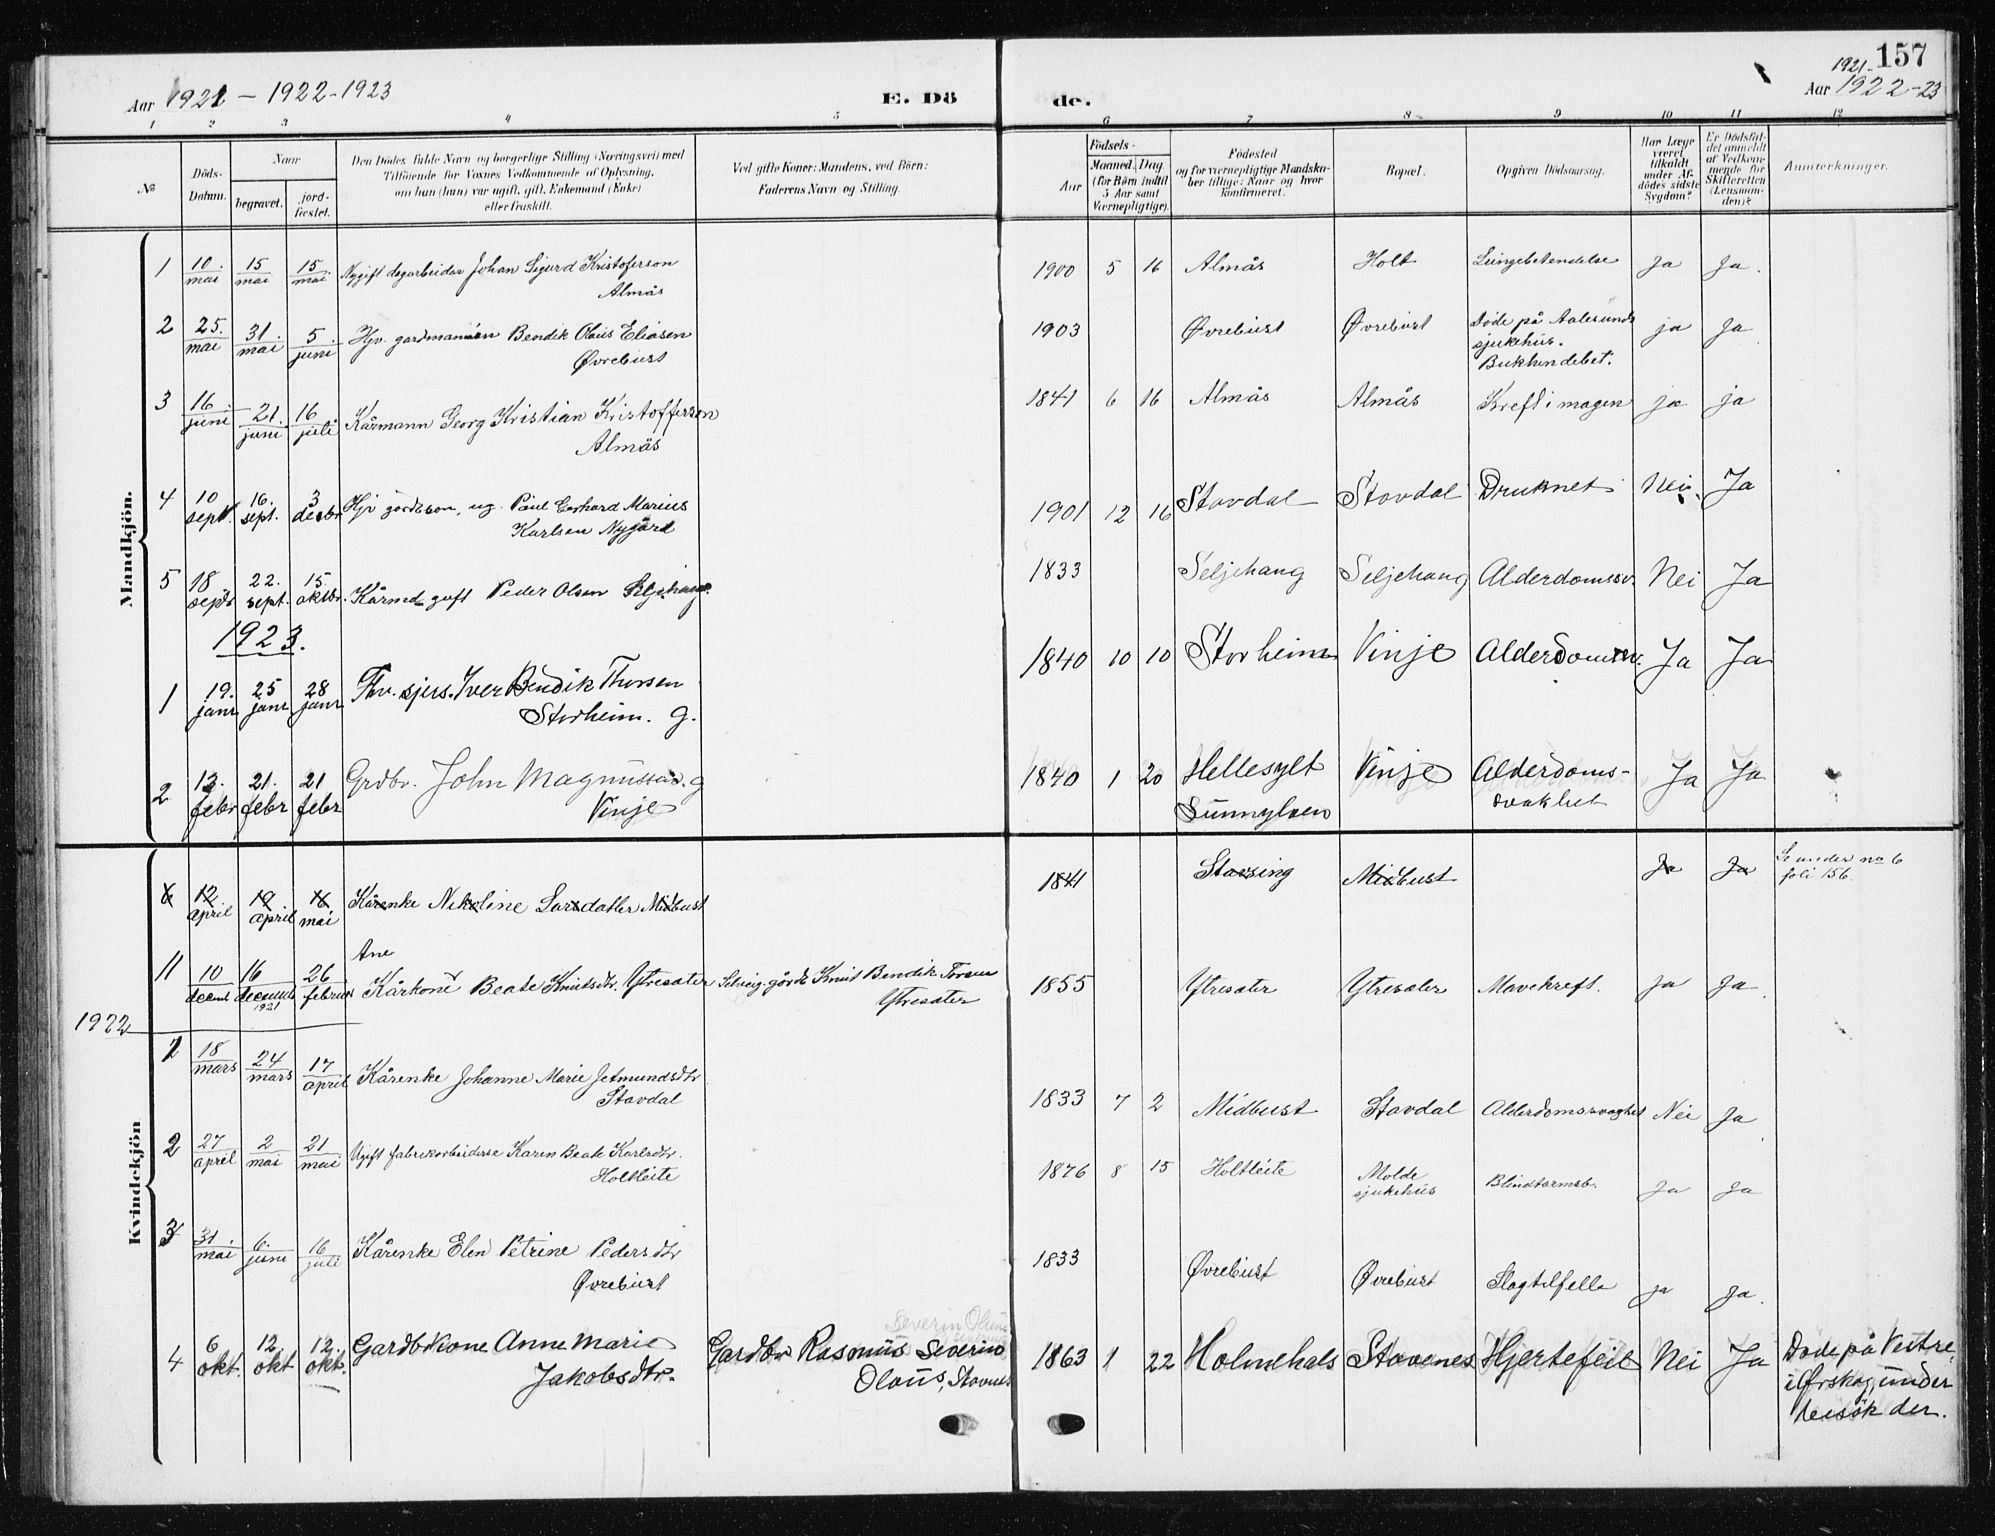 157
Aar 1921 — 1922-1923
E. Dö
de.
1921-
Aar 1922-23
1 2 3 4 5 6 7 8 9 10 11 12
No
Döds-
Datum.
Naar
begravet.
jord-
fæstet.
Den Dödes fulde Navn og borgerlige Stilling (Næringsvei) med
Tilföiende for Voxnes Vedkommende af Oplysning,
om han (hun) var ugift, gift, Enkemand (Enke)
eller fraskilt.
Ved gifte Koner: Mandens, ved Börn:
Faderens Navn og Stilling.
Födsels-
Aar
Maaned. Dag.
(for Börn indtil
5 Aar samt
Værnepligtige).
Födested
og for værnepligtige Mandska-
ber tillige: Naar og hvor
konfirmeret.
Bopæl.
Opgiven Dödsaarsag.
Har Læge
været
tilkaldt
under Af-
dödes sidste
Sygdom?
Er Dödsfal-
det anmeldt
af Vedkom-
mende for
Skifteretten
(Lensman-
den)?
Anmærkninger.
Mandkjön.
1 10. mai 15 mai 15. mai Nygift dagarbeidar Johan Sigurd Kristoferson 1900 5 16 Almås Holt Lungebetendelse Ja Ja.
Almås
2 25. mai 31. mai 5. juni Hjv. gardmannsøn Bendik Olaus Eliasen 1903 Øvrebust Øvrebust Døde på Aalesunds ja Ja
Øvrebust sjukehus.
Bukhindebet.
3 16. juni 21. juni 16 juli Kårmann Georg Kristian Kristofferson 1841 6 16 Almås Almås Kreft i magen ja ja
Almås
4 10 sept. 16. sept. 3 desbr Hjv gårdsson, ug. Paul Gerhard Marius 1901 12 16 Stavdal Stavdal Druknet Nei. Ja
Karlsen Nygård
5 18 septr 22. sept. 15. oktbr. Kårmd gift Peder Olsen Seljehaug 1833 Seljehaug Seljehaug Alderdomssv. Nei Ja
1923.
1 19. janr 25 janr 28 janr Fhv. sjers. Iver Bendik Thorsen 1840 10 10 Storheim Vinje Alderdomssv. Ja Ja
Storheim. g.
2 13. febr 21. febr 21 febr Grdbr. John Magnusson. g 1840 1 20 Hellesylt Vinje Alderdoms- Ja Ja
Vinje Sunnylven svakhet
Kvindekjön
6 12 april 19 april 16 mai Kårenke Nikoline Larsdatter Midbust 1841 Stavsing Midbust Ja Ja Se under no 6
foli 156.
Ane
11 10 decmb 16 decemb 1921 26 februar Kårkone Beate Knutsdtr. Ytresæter Selveig. gårdb Knut Bendik Torsen 1855 Ytresæter Ytresæter Mavekreft. Ja Ja
Ytresæter
1922
1 18 mars 24 mars 17 april Kårenke Johanne Marie Jetmundsdtr 1833 7 2 Midbust Stavdal Alderdomssvaghet Nei Ja
Stavdal
2 27 april 2 mai 21 mai Ugift fabrikarbeiderse Karen Beate Karlsdtr. 1876 8 15 Holtleite Molde sjukehus Blindtarmsb. Ja Ja
Holtleite
3 31. mai 6. juni 16 juli Kårenke Elen Petrine Pedersdtr 1833 Øvrebust Øvrebust Slagtilfelle ja Ja.
Øvrebust
Severin Olaus
4 6 okt. 12. okt 12. okt. Gardbrkone Anne Marie Gardbr Rasmus Severin 1863 1 22 Holmehals Stavenes Hjertefeil Nei Ja Døde på Veitre,
Jakobsdtr. Olaus, Stavnes i Ørskog, under
besøk der.